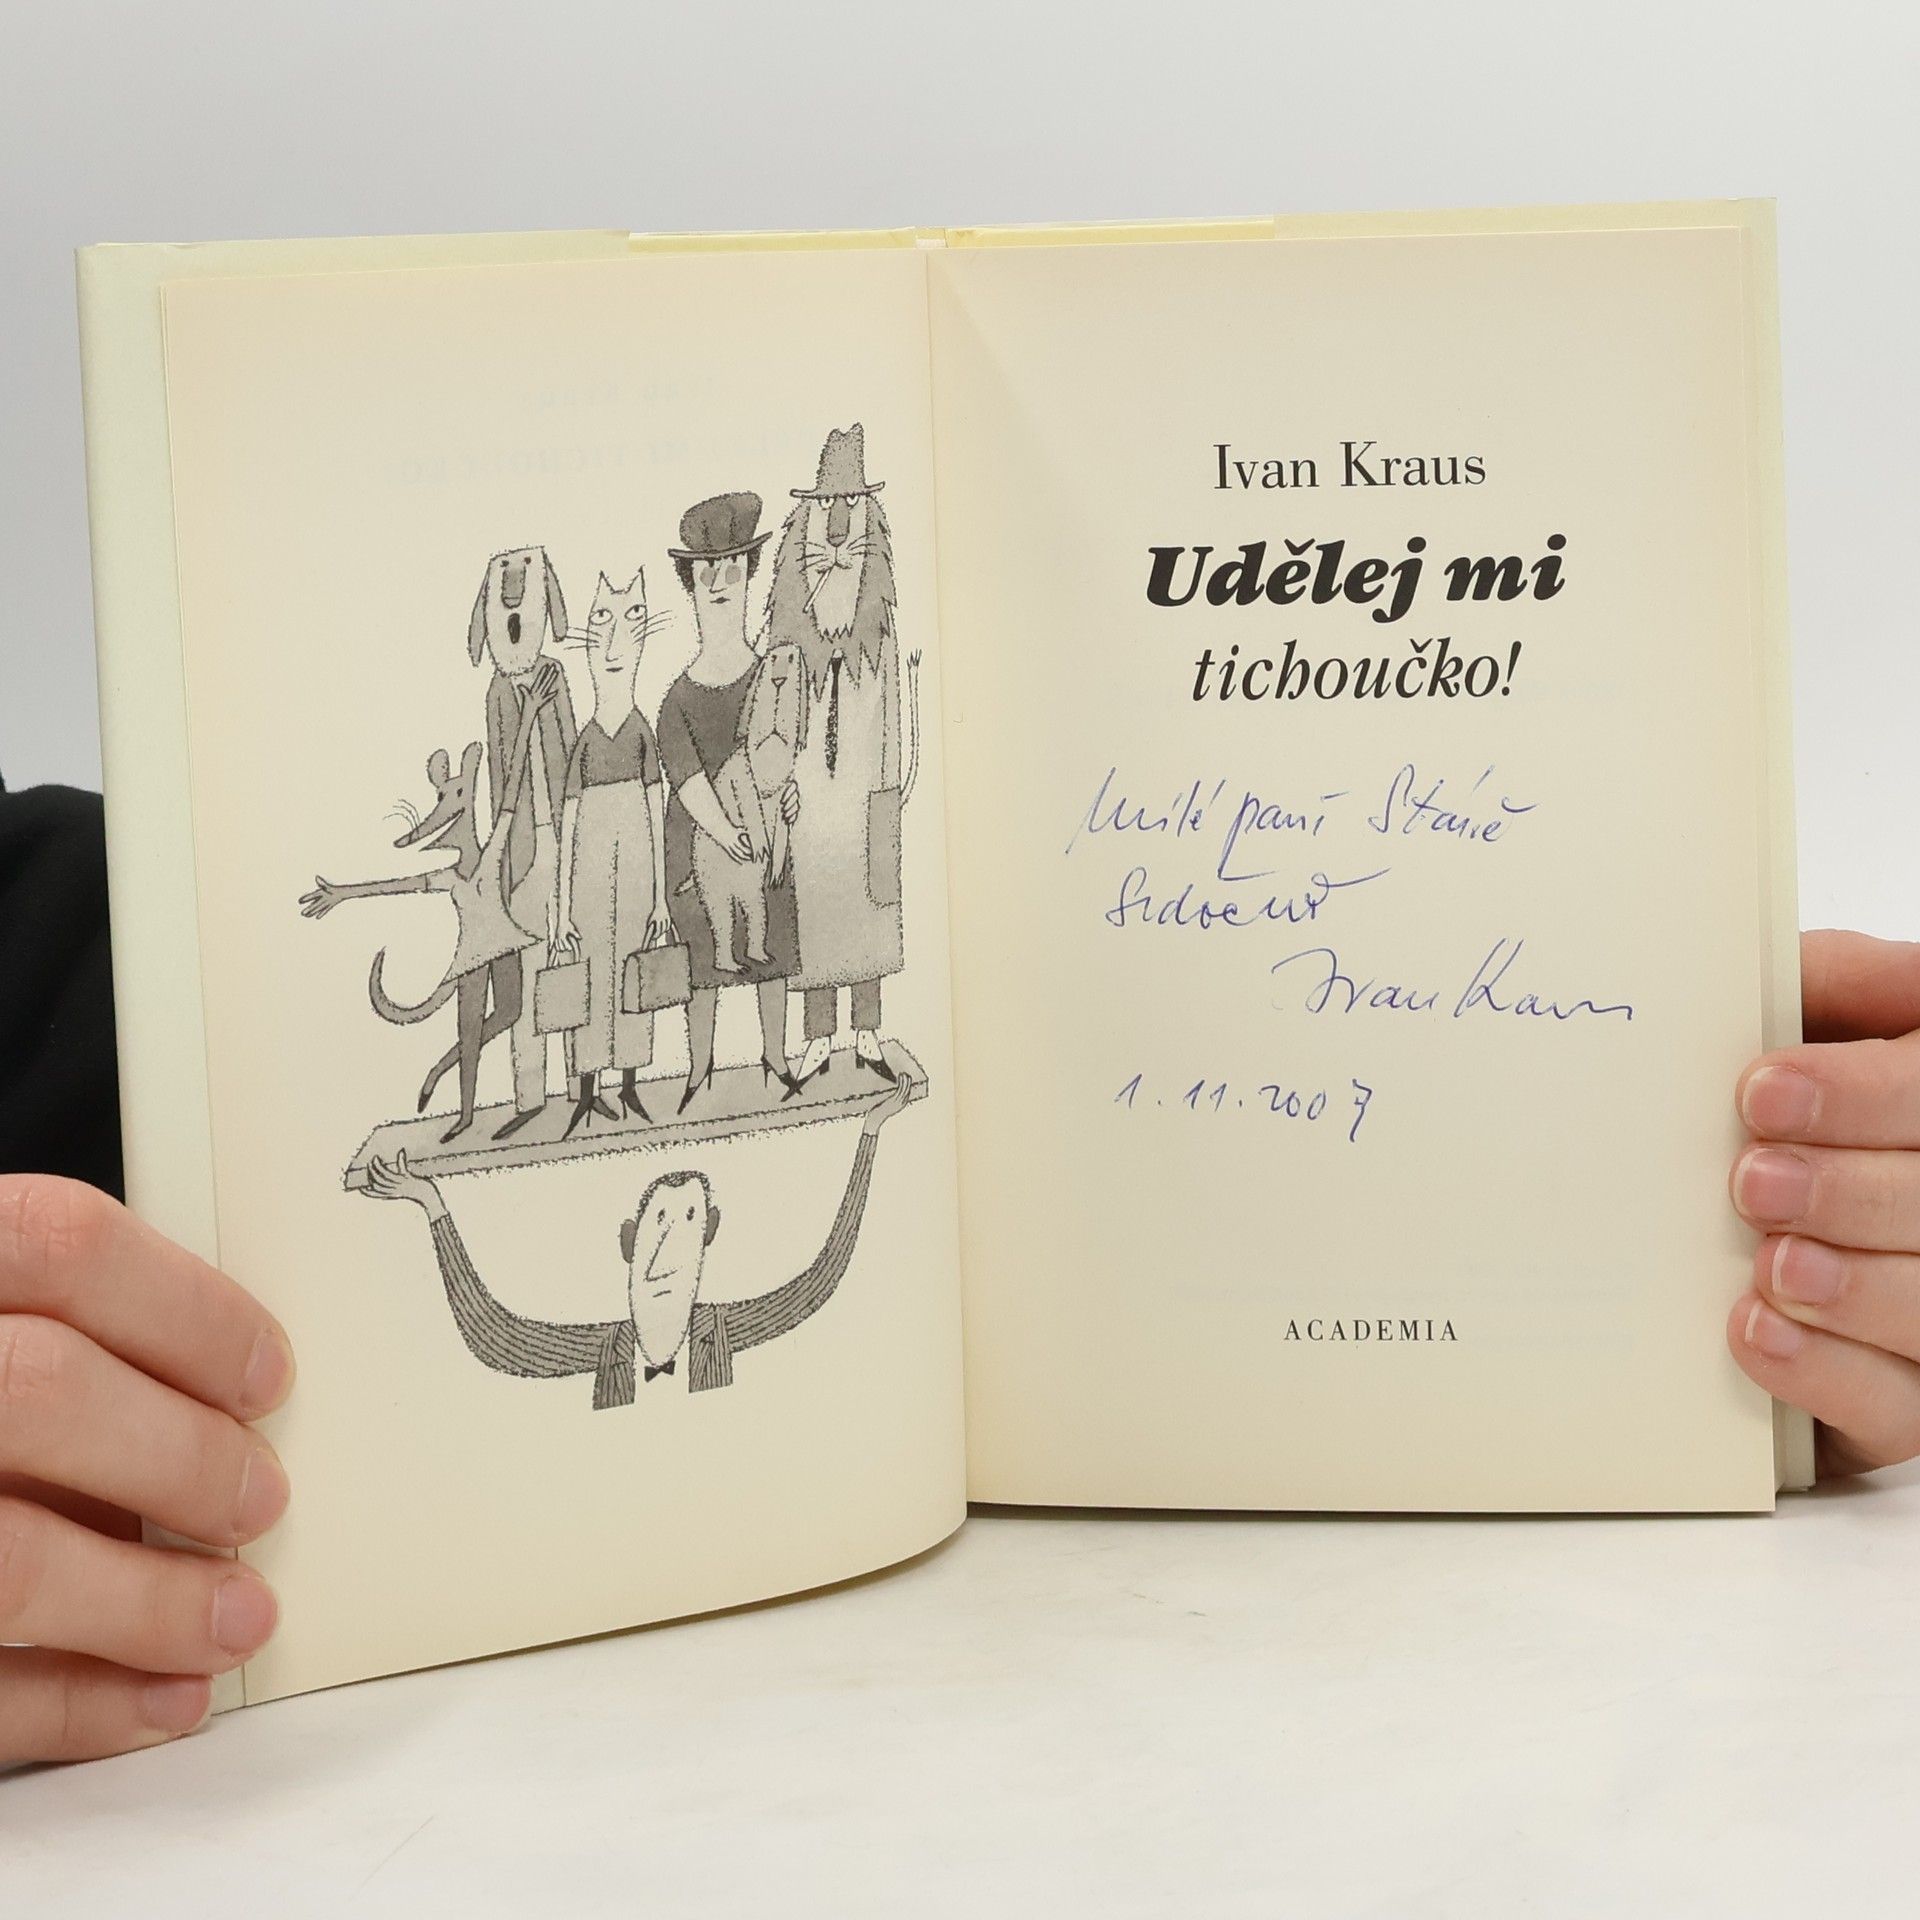 Ivan Kraus
Udělej mi
tichoučko!
Milé paní
Srdečně
Ivan Kraus
1. 11. 2007
ACADEMIA